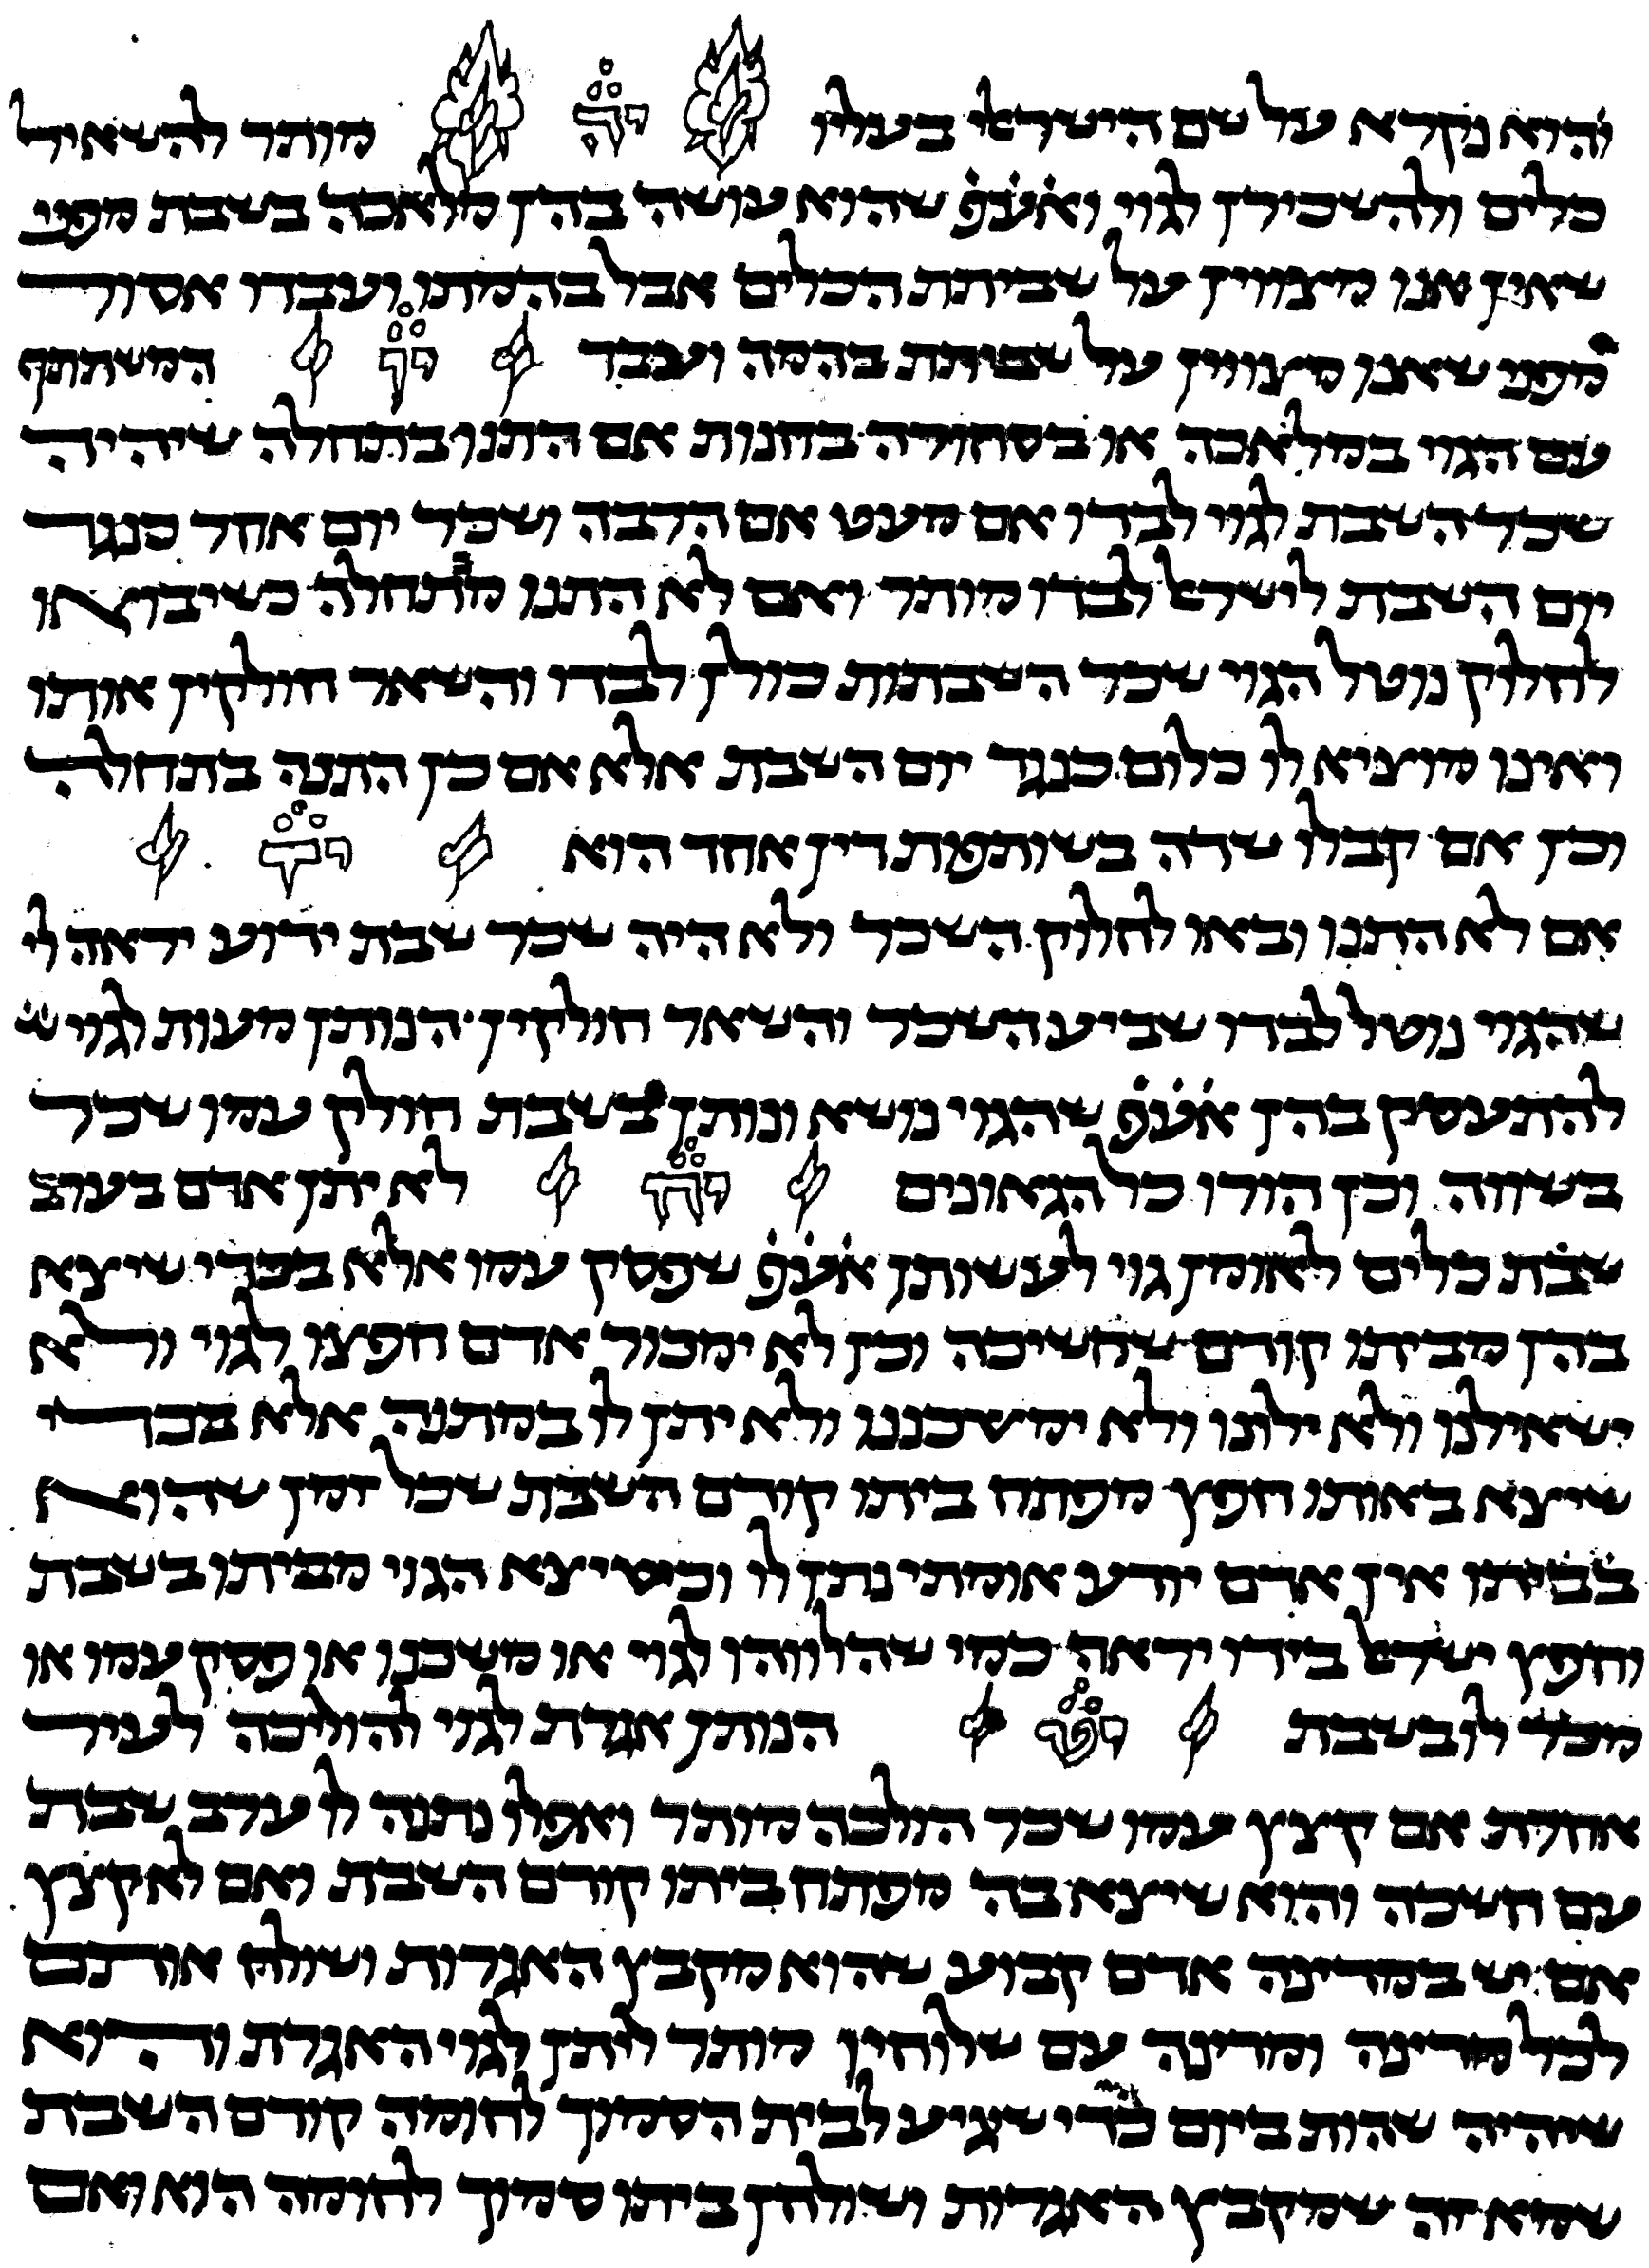 והוא נקרא על שם הישראלי בעליו יה מותר להשאיל
כלים ולהשכירן לגוי ואע֗פ֗ שהוא עושה בהן מלאכה בשבת מפני
שאין אנו מצווין על שביתת הכלים אבל בהמתו ועבדו אסור
מפני שאנו מצווין על שביתת בהמה ועבד יו המשתתף
עם הגוי במלאכה או בסחורה בחנות אם התנו בתחלה שיהיה
שכר השבת לגוי לבדו אם מעט אם הרבה ושכר יום אחד כנגד
יום השבת לישראל לבדו מותר ואם לא התנו מתחלה כשיבואו
לחלוק נוטל הגוי שכר השבתות כולן לבדו והשאר חולקין אותו
ואינו מוציא לו כלום כנגד יום השבת אלא אם כן התנה בתחלה
וכן אם קבלו שדה בשותפות דין אחד הוא
אם לא התנו ובאו לחלוק השכר ולא היה שכר שבת ידוע יראה לי
שהגוי נוטל לבדו שביע השכר והשאר חולקין הנותן מעות לגוי
להתעסק בהן אע֗פ֗ שהגוי נושא ונותן בשבת חולק עמו שכר
בשווה וכן הורו כל הגאונים לא יתן אדם בערב
שבת כלים לאומן גוי לעשותן אע֗פ֗ שפסק עמו אלא בכדי שיצא
בהן מביתו קודם שחשיכה וכן לא ימכור אדם חפצו לגוי ולא
ישאילנו ולא ילונו ולא ימשכננו ולא יתן לו במתנה אלא בכדי
שיצא באותו חפץ מפתח ביתו קודם השבת שכל זמן שהוא
בביתו אין אדם יודע אומתי נתן לו וכשיצא הגוי מביתו בשבת
וחפץ ישראל בידו יראה כמי שהלווהו לגוי או משכנו או פסק עמו או
מכר לו בשבת הנותן אגרת לגוי להוליכה לעיר
אחרת אם קצץ עמו שכר הולכה מותר ואפלו נתנה לו ערב שבת
עם חשכה והוא שיצא בה מפתח ביתו קודם השבת ואם לא קצץ
אם יש במדינה אדם קבוע שהוא מקבץ האגרות ושולח אותם
לכל מדינה ומדינה עם שלוחיו מותר ליתן לגוי האגרת והוא
שיהיה שהות ביום כדי שיגיע לבית הסמוך לחומה קודם השבת
שמא זה שמקבץ האגרות ושולחן ביתו סמוך לחומה הוא ואם